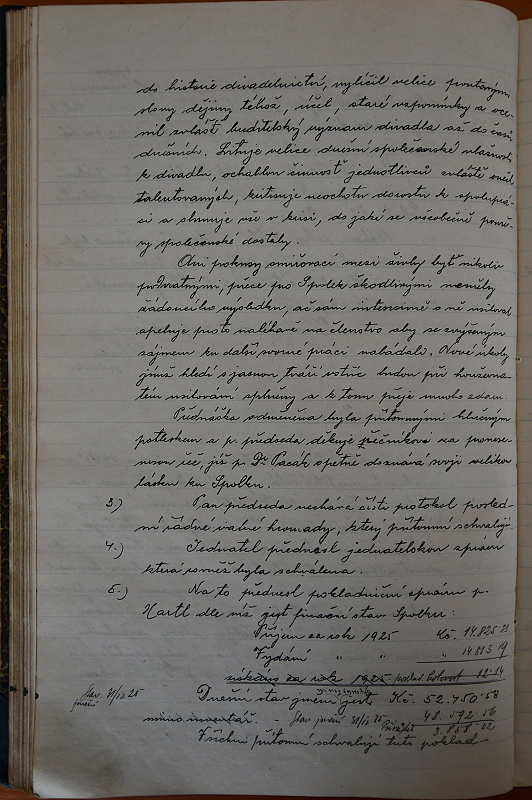 do historie divadelnictví, vylíčil velice poutavými
slovy dějiny téhož, účel, staré vzpomínky a oce-
nil zvlášť buditelský význam divadla až do časů
dnešních. Lituje velice dnešní společenské vlažnosti
k divadlu, ochablou činnost jednotlivců zvláště
talentovaných, kritisuje neochotu dorostu k spoluprá-
ci a shrnuje vše v krisi, do jaké se všeobecně pomě-
ry společenské dostaly.
Ani pokusy smiřovací mezi živly byť nikoliv
podvratnými, přece pro Spolek škodlivými neměly
žádoucího výsledku, ač sám intensivně o ně usiloval
apeluje proto naléhavě na členstvo aby se zvýšeným
zájmem ku další svorné práci nabádali. Nové úkoly
jimž hledí s jasnou tváří vstříc budou při houževna-
tém usilování splněny a k tomu přeje mnoho zdaru.
Přednáška odměněna byla přítomnými hlučným
potleskem a p. předseda děkuje řečníkovi za pronese-
nou řeč, jíž p. Dr. Pacák opětně doznává svoji velikou
lásku ku Spolku.
3.) Pan předseda nechává čísti protokol posled-
ní řádné valné hromady, který přítomní schvalují
4.) Jednatel přednesl jednatelskou zprávu
která rovněž byla schválena.
5.) Na to přednesl pokladniční zprávu p.
Hartl dle níž jest finanční stav Spolku:
Příjem za rok 1925 Kč. 14.825·33
Vydání " " " 14813 19
za rok 1925 poklad. hotovost 12·14
Stav jmění 31/12 25 Dnešní stav jmění jest Kč. 52.450·58
mimo inventář. - Stav jmění 31/12 25 48.592·56
Přírůstek 3.858·02
Všichni přítomní schvalují tuto poklad-